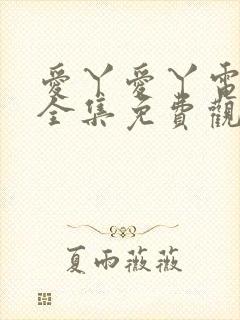 愛丫愛丫電
全集免費觀
夏雨薇薇